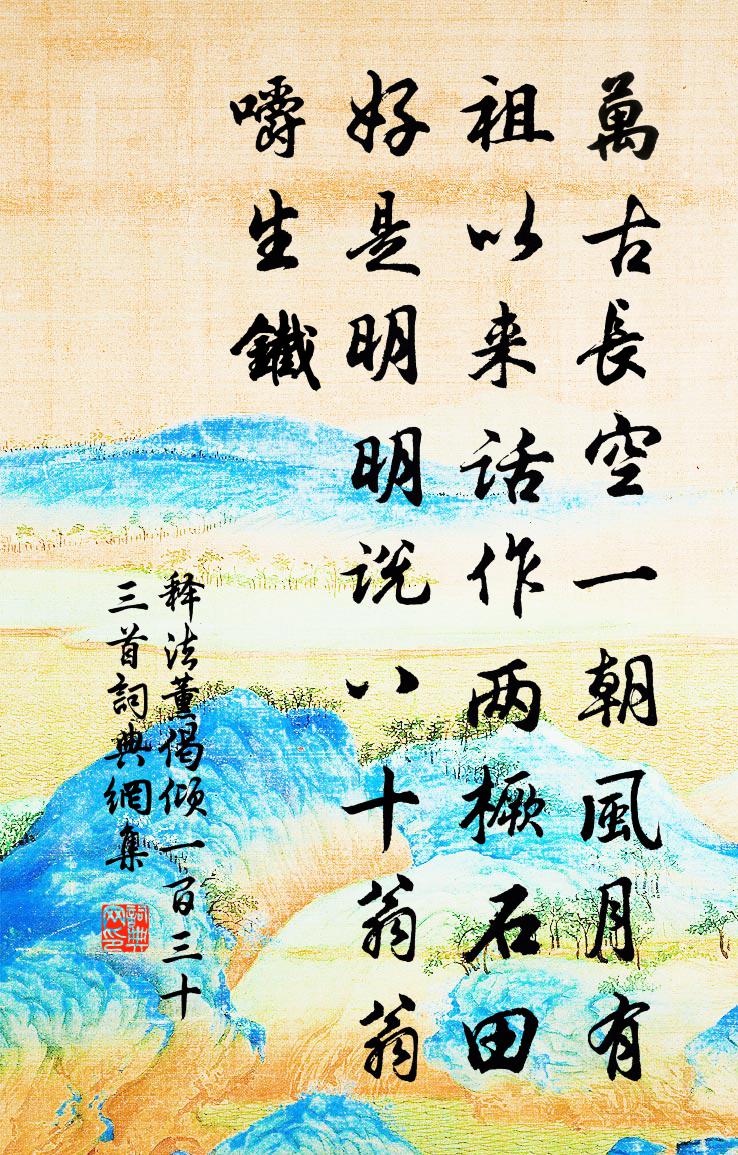 萬古長空一朝風月有
祖以来话作两橛石田
好是明明说八十翁翁
嚼生鐵
释法薰偈倾一百三十
三首詞典網集
詞典网印